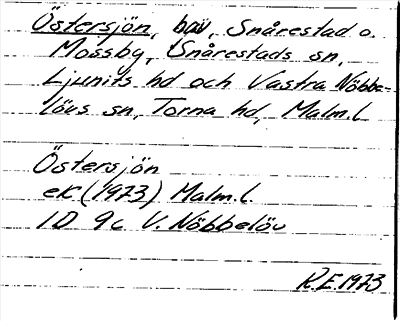 Östersjön, hav, Snårestad o.
Mossby, Snårestads sn,
Ljunits hd och Västra Nöbbe-
lövs sn, Torna hd, Malm.l
Östersjön
ek (1973) Malm.l.
1D 9c V. Nöbbelöv
R.E. 1973